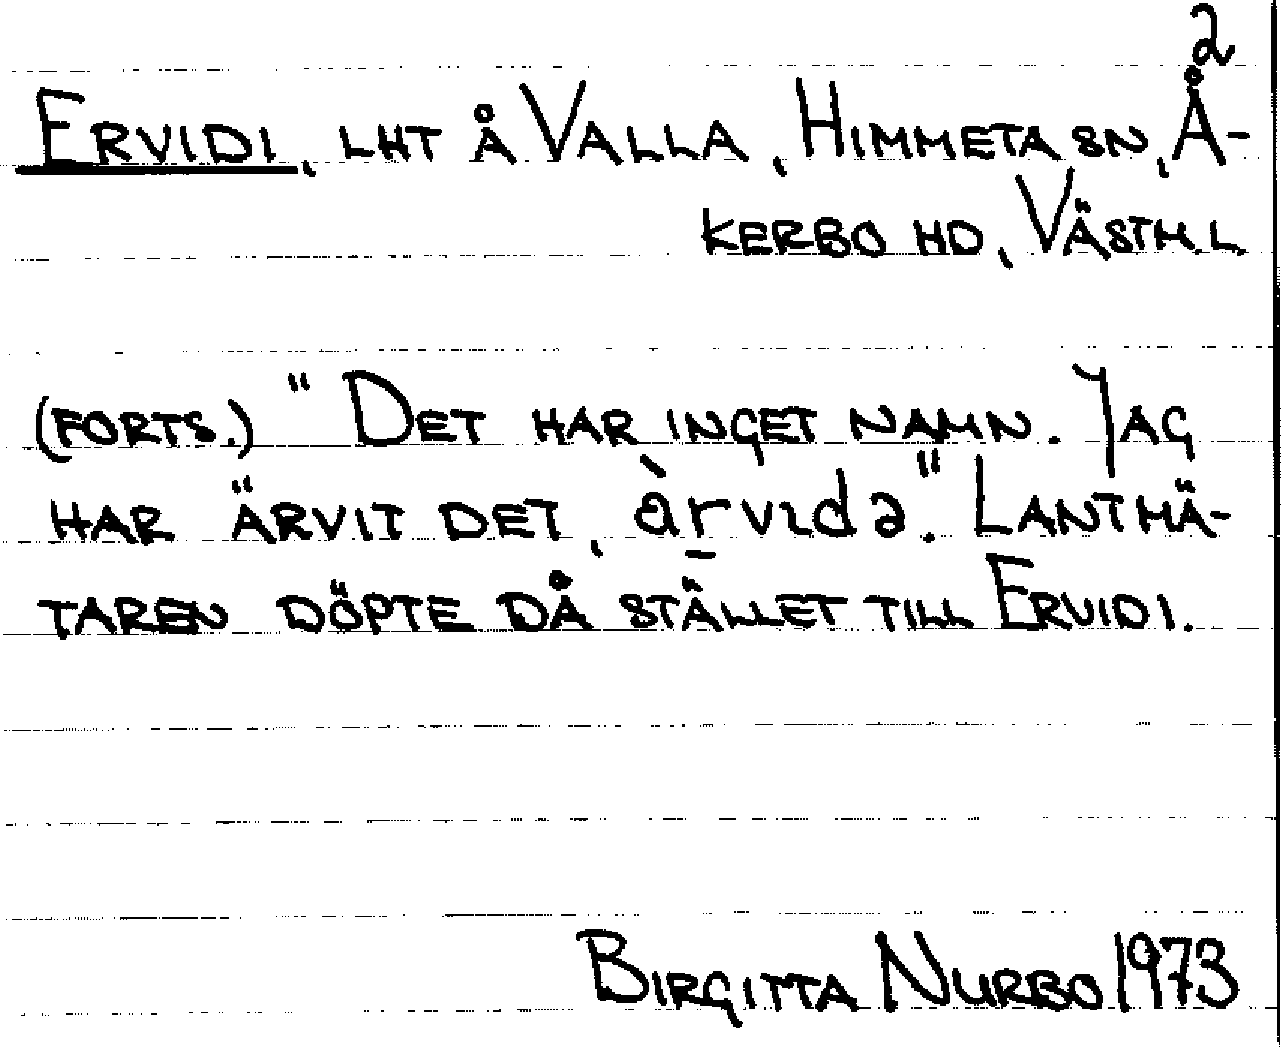 2
ERVIDI, LHT Å VALLA, HIMMETA SN, Å-
KERBO HD, VÄSTM.L.
(FORTS.) "DET HAR INGET NAMN. JAG
HAR ÄRVIT DET, àr̲vıdə". LANTMÄ-
TAREN DÖPTE DÅ STÄLLET TILL ERVIDI.
BIRGITTA NURBO 1973